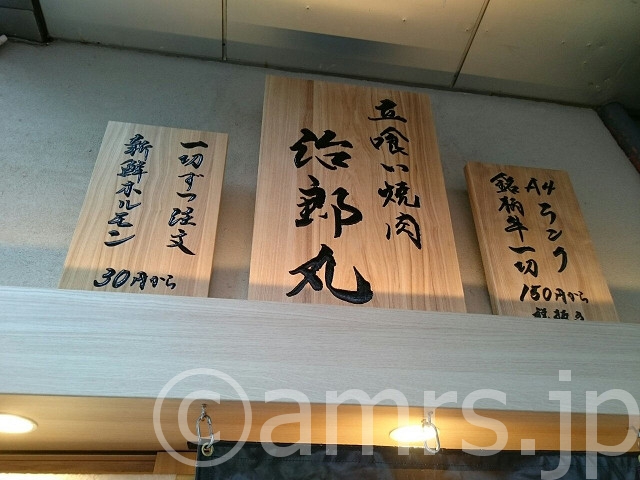 立喰い焼肉
治郎丸
一切ずつ注文
新鮮ホルモン
30円から
A4ランク
銘柄牛一切
150円から
©amrs.jp